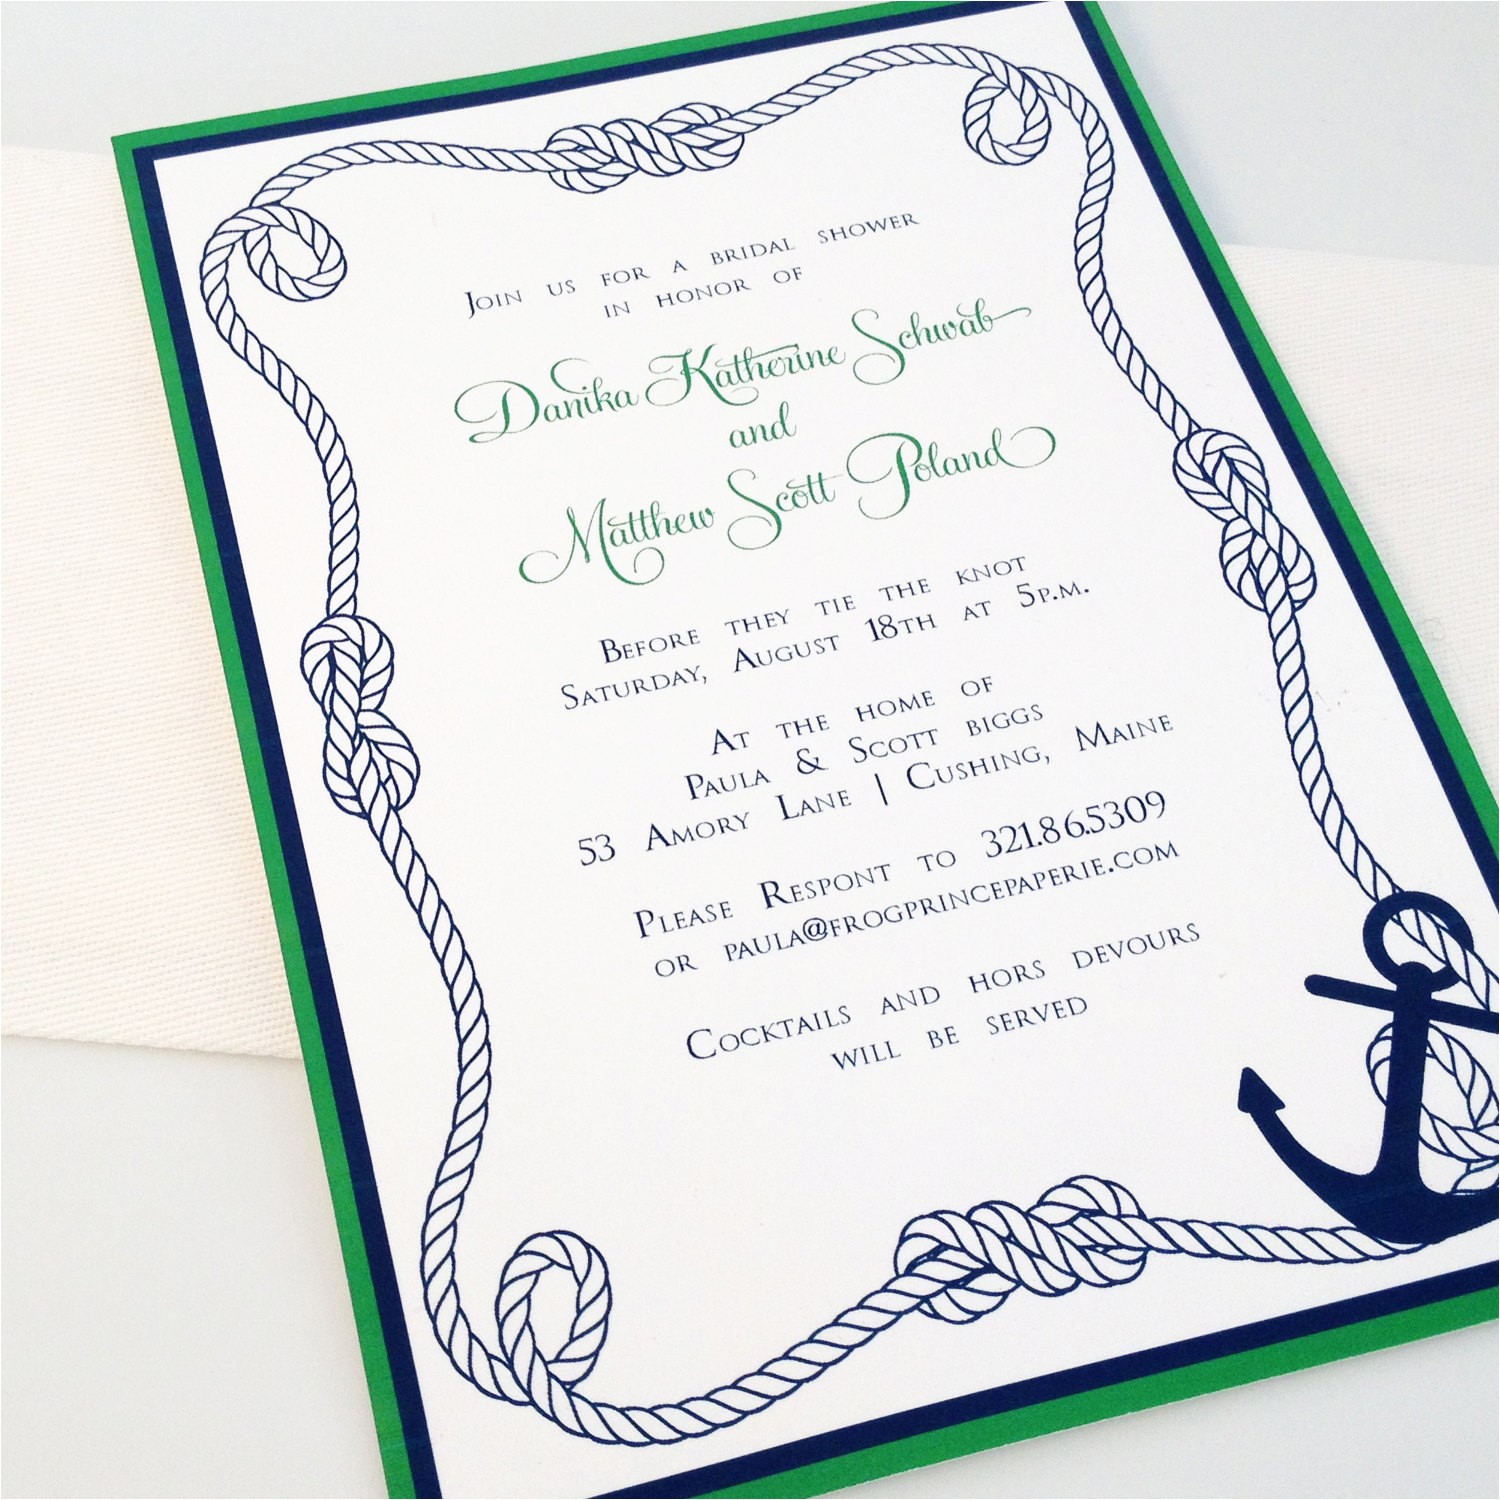 Join us for a bridal shower
in honor of
Danika Katherine Schwab
and
Matthew Scott Poland
Before they tie the knot
Saturday, August 18th at 5p.m.
At the home of
Paula & Scott biggs
53 Amory Lane | Cushing, Maine
Please Respont to 321.86.5309
or paula@frogprincepaperie.com
Cocktails and hors devours
will be served